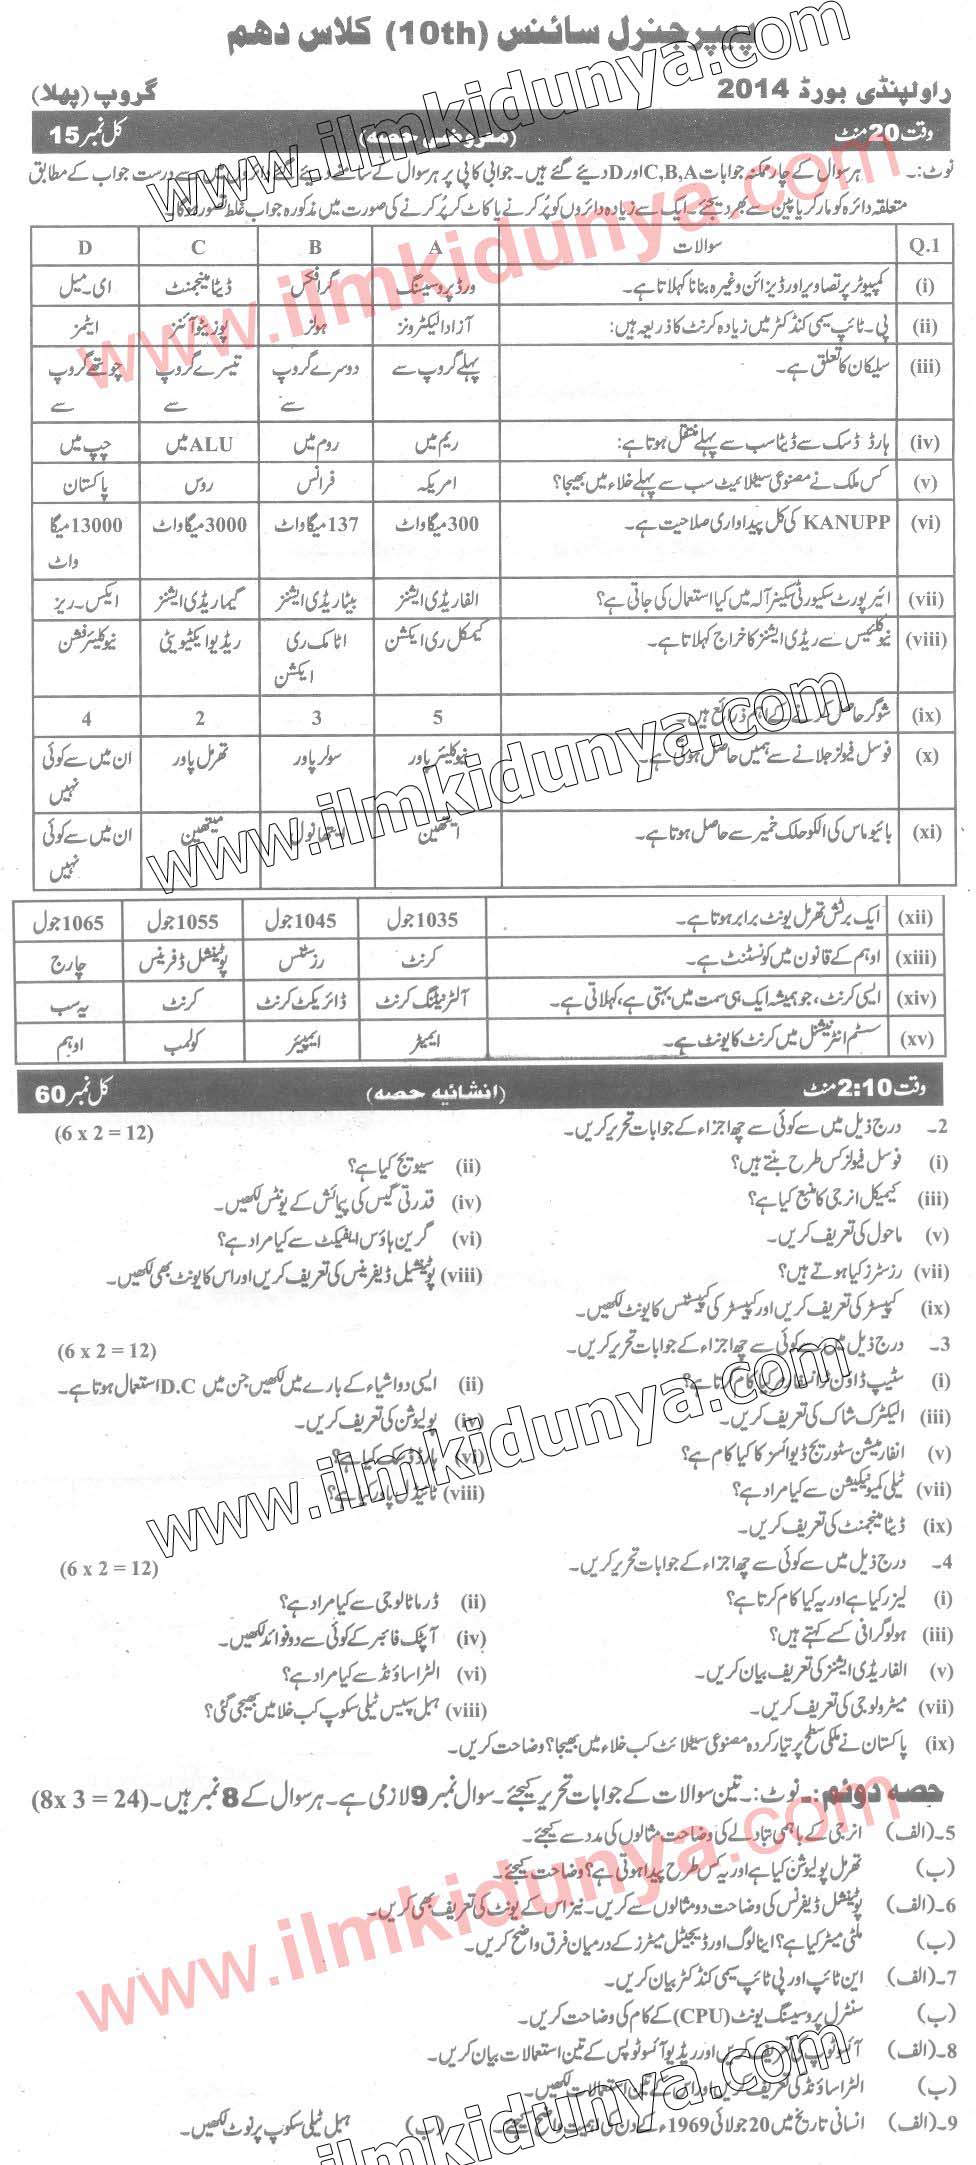 پیپر جنرل سائنس (10th) کلاس دهم
راولپنڈی بورڈ 2014 گروپ (پہلا)
وقت 20 منٹ (معروضی حصہ) کل نمبر 15
نوٹ:۔ ہر سوال کے چار ممکنہ جوابات A,B,C اور D دیئے گئے ہیں۔ جوابی کاپی پر ہر سوال کے سامنے دیئے گئے دائروں میں سے درست جواب کے مطابق
متعلقہ دائرہ کو مارکر یا پین سے بھر دیجئے۔ ایک سے زیادہ دائروں کو پُر کرنے یا کاٹ کر پُر کرنے کی صورت میں مذکورہ جواب غلط تصور ہوگا۔
Q.1 سوالات A B C D
(i) کمپیوٹر پر تصاویر اور ڈیزائن وغیرہ بنانا کہلاتا ہے۔ ورڈ پروسیسنگ گرافکس ڈیٹا مینجمنٹ ای۔میل
(ii) پی۔ ٹائپ سیمی کنڈکٹر میں زیادہ کرنٹ کا ذریعہ ہیں: آزاد الیکٹرونز ہولز پوزیٹو آئنز ایٹمز
(iii) سلیکان کا تعلق ہے۔ پہلے گروپ سے دوسرے گروپ سے تیسرے گروپ سے چوتھے گروپ سے
(iv) ہارڈ ڈسک سے ڈیٹا سب سے پہلے منتقل ہوتا ہے: ریم میں روم میں ALU میں چپ میں
(v) کس ملک نے مصنوعی سیٹلائیٹ سب سے پہلے خلاء میں بھیجا؟ امریکہ فرانس روس پاکستان
(vi) KANUPP کی کل پیداواری صلاحیت ہے۔ 300 میگا واٹ 137 میگا واٹ 3000 میگا واٹ 13000 میگا واٹ
(vii) ائیرپورٹ سکیورٹی سکینر آلہ میں کیا استعمال کی جاتی ہے؟ الفا ریڈی ایشنز بیٹا ریڈی ایشنز گیما ریڈی ایشنز ایکس۔ریز
(viii) نیوکلیئس سے ریڈی ایشنز کا خراج کہلاتا ہے۔ کیمیکل ری ایکشن اٹامک ری ایکشن ریڈیو ایکٹیویٹی نیوکلیئر فشن
(ix) شوگر حاصل کرنے کے اہم ذرائع ہیں۔ 5 3 2 4
(x) فوسل فیولز جلانے سے ہمیں حاصل ہوتی ہے۔ نیوکلیئر پاور سولر پاور تھرمل پاور ان میں سے کوئی نہیں
(xi) بائیو ماس کی الکوحلک خمیر سے حاصل ہوتا ہے۔ ایتھین ایتھانول میتھین ان میں سے کوئی نہیں
(xii) ایک برٹش تھرمل یونٹ برابر ہوتا ہے۔ 1035 جول 1045 جول 1055 جول 1065 جول
(xiii) اوہم کے قانون میں کونسٹنٹ ہے۔ کرنٹ رزسٹنس پوٹینشل ڈفرینس چارج
(xiv) ایسی کرنٹ، جو ہمیشہ ایک ہی سمت میں بہتی ہے، کہلاتی ہے۔ آلٹرنیٹنگ کرنٹ ڈائریکٹ کرنٹ کرنٹ یہ سب
(xv) سسٹم انٹرنیشنل میں کرنٹ کا یونٹ ہے۔ ایمیٹر ایمپیئر کولمب اوہم
وقت 2:10 منٹ (انشائیہ حصہ) کل نمبر 60
2۔ درج ذیل میں سے کوئی سے چھ اجزاء کے جوابات تحریر کریں۔ (6 x 2 = 12)
(i) فوسل فیولز کس طرح بنتے ہیں؟ (ii) سیویج کیا ہے؟
(iii) کیمیکل انرجی کا منبع کیا ہے؟ (iv) قدرتی گیس کی پیمائش کے یونٹس لکھیں۔
(v) ماحول کی تعریف کریں۔ (vi) گرین ہاؤس ایفیکٹ سے کیا مراد ہے؟
(vii) رزسٹرز کیا ہوتے ہیں؟ (viii) پوٹینشیل ڈیفرینس کی تعریف کریں اور اس کا یونٹ بھی لکھیں۔
(ix) کپیسٹر کی تعریف کریں اور کپیسٹر کی کپیسٹنس کا یونٹ لکھیں۔
3۔ درج ذیل میں سے کوئی سے چھ اجزاء کے جوابات تحریر کریں۔ (6 x 2 = 12)
(i) سٹیپ ڈاؤن ٹرانسفارمر کیا کام کرتا ہے؟ (ii) ایسی دو اشیاء کے بارے میں لکھیں جن میں D.C استعمال ہوتا ہے۔
(iii) الیکٹرک شاک کی تعریف کریں۔ (iv) پولیوشن کی تعریف کریں۔
(v) انفارمیشن سٹوریج ڈیوائسز کا کیا کام ہے؟ (vi) ہارڈ ڈسک کیا ہے؟
(vii) ٹیلی کمیونیکیشن سے کیا مراد ہے؟ (viii) ٹائیڈل پاور کیا ہے؟
(ix) ڈیٹا مینجمنٹ کی تعریف کریں۔
4۔ درج ذیل میں سے کوئی سے چھ اجزاء کے جوابات تحریر کریں۔ (6 x 2 = 12)
(i) لیزر کیا ہے اور یہ کیا کام کرتا ہے؟ (ii) ڈرماٹالوجی سے کیا مراد ہے؟
(iii) ہولوگرافی کسے کہتے ہیں؟ (iv) آپٹک فائبر کے کوئی سے دو فوائد لکھیں۔
(v) الفا ریڈی ایشنز کی تعریف بیان کریں۔ (vi) الٹراساؤنڈ سے کیا مراد ہے؟
(vii) میٹرولوجی کی تعریف کریں۔ (viii) ہبل سپیس ٹیلی سکوپ کب خلا میں بھیجی گئی؟
(ix) پاکستان نے ملکی سطح پر تیار کردہ مصنوعی سیٹلائٹ کب خلاء میں بھیجا؟ وضاحت کریں۔
حصہ دوئم:۔ نوٹ:۔ تین سوالات کے جوابات تحریر کیجئے۔ سوال نمبر 9 لازمی ہے۔ ہر سوال کے 8 نمبر ہیں۔ (8x 3 = 24)
5۔(الف) انرجی کے باہمی تبادلے کی وضاحت مثالوں کی مدد سے کیجئے۔
(ب) تھرمل پولیوشن کیا ہے اور یہ کس طرح پیدا ہوتی ہے؟ وضاحت کیجئے۔
6۔(الف) پوٹینشل ڈیفرنس کی وضاحت دو مثالوں سے کریں۔ نیز اس کے یونٹ کی تعریف بھی کریں۔
(ب) ملٹی میٹر کیا ہے؟ اینالوگ اور ڈیجیٹل میٹرز کے درمیان فرق واضح کریں۔
7۔(الف) این ٹائپ اور پی ٹائپ سیمی کنڈکٹر بیان کریں۔
(ب) سنٹرل پروسیسنگ یونٹ (CPU) کے کام کی وضاحت کریں۔
8۔(الف) آئسوٹوپ کی تعریف کریں اور ریڈیو آئسوٹوپس کے تین استعمالات بیان کریں۔
(ب) الٹراساؤنڈ کی تعریف کریں اور اس کے تین استعمالات لکھیں۔
9۔(الف) انسانی تاریخ میں 20 جولائی 1969ء کے دن کی اہمیت واضح کیجئے۔ (ب) ہبل ٹیلی سکوپ پر نوٹ لکھیں۔
www.ilmkidunya.com
www.ilmkidunya.com
www.ilmkidunya.com
www.ilmkidunya.com
www.ilmkidunya.com
ilmkidunya.com